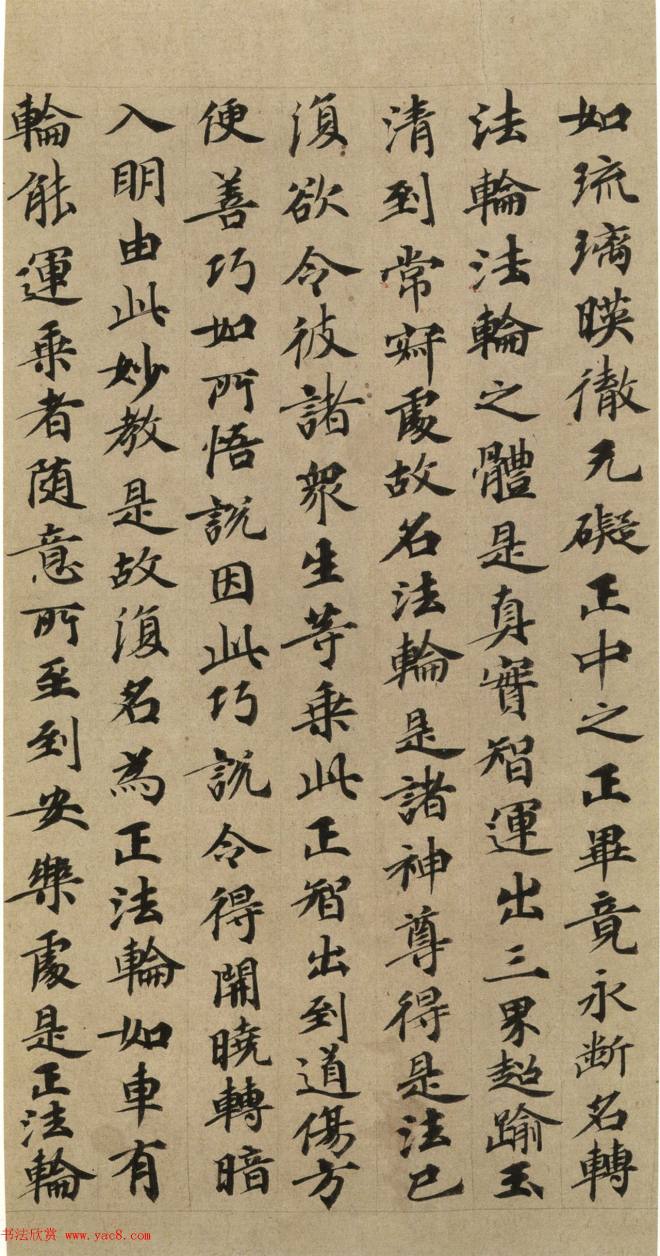 如琉璃暎徹无礙正中之正畢竟永断名轉
法輪法輪之體是真實智運出三界超踰玉
清到常寂處故名法輪是諸神尊得是法已
復欲令彼諸衆生等乗此正智出到道傷方
便善巧如所悟説因此巧説令得開曉轉暗
入明由此妙教是故復名為正法輪如車有
輪能運乗者随意所至到安樂處是正法輪
书法欣赏 www.yac8.com